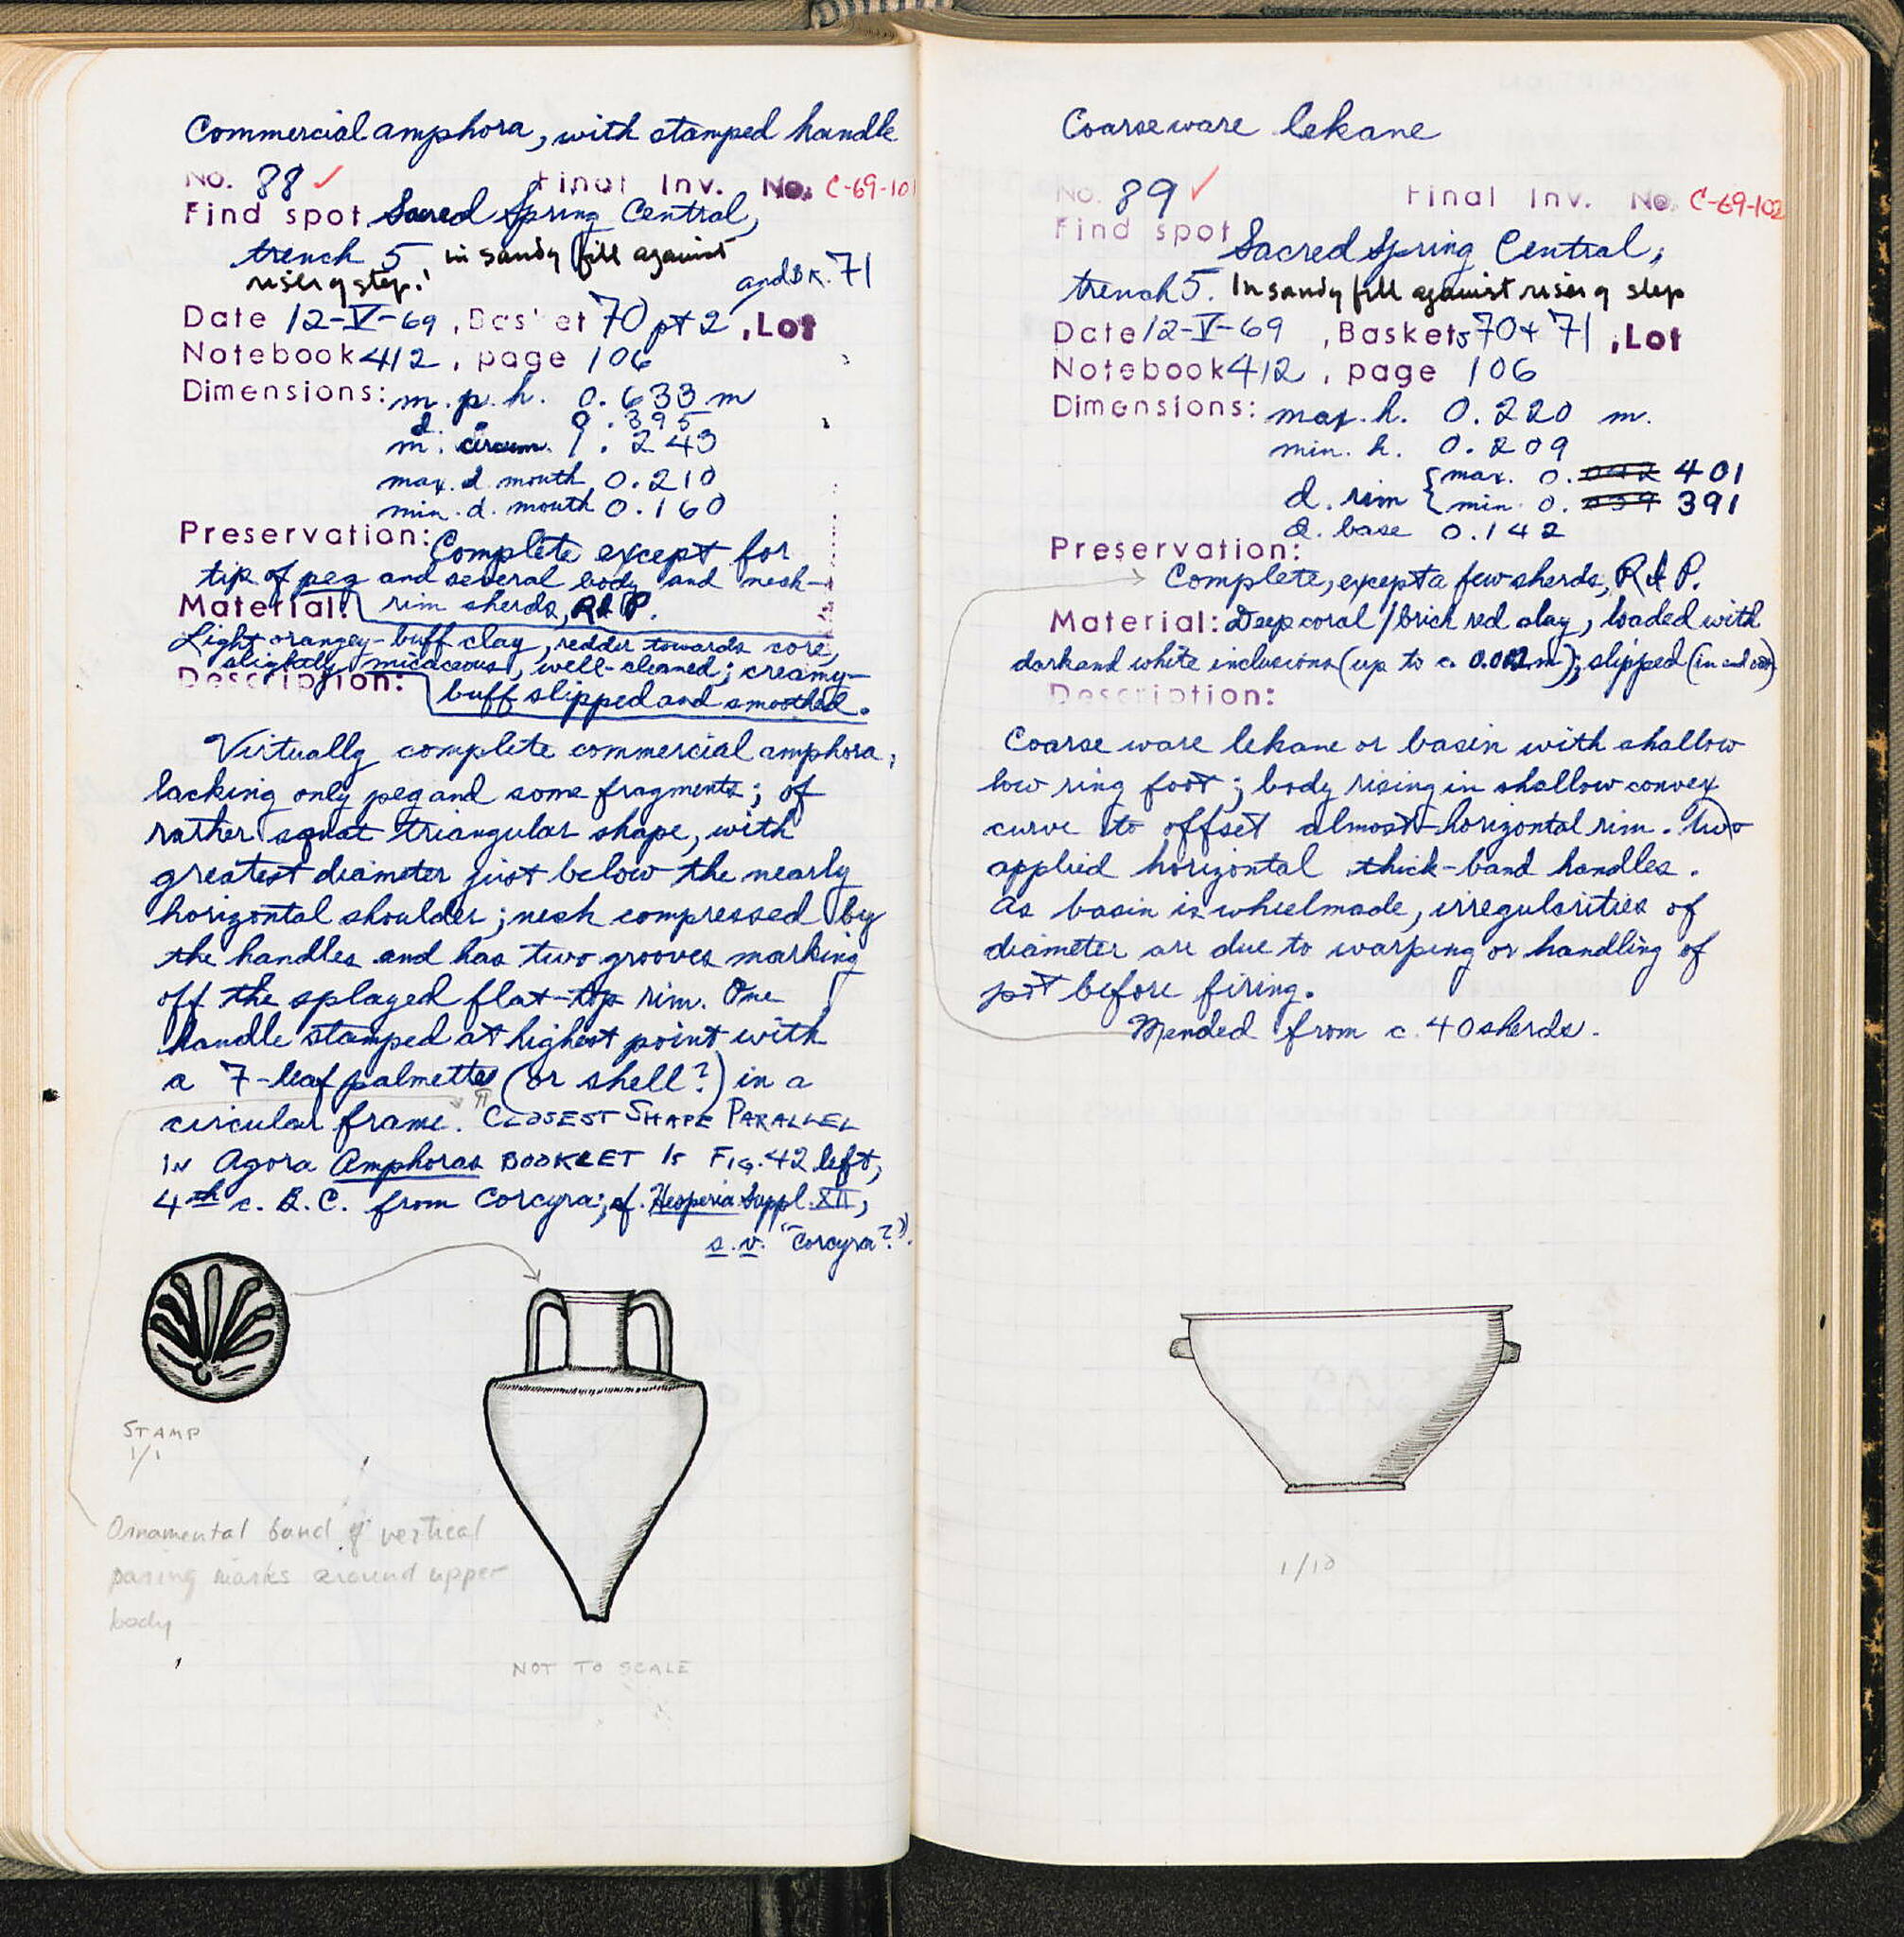 Commercial amphora, with stamped handle
No. 88 ✓ Final Inv. No. C-69-101
Find spot Sacred Spring Central,
trench 5 in sandy fill against
riser of step. and BK. 71
Date 12-V-69, Basket 70 pt 2, Lot
Notebook 412, page 106
Dimensions: m. p. h. 0.633 m
d. 0.395
m. circum. 1.243
max. d. mouth 0.210
min. d. mouth 0.160
Preservation: Complete except for
tip of peg and several body and neck-
Material: rim sherds, R & P.
Light orangey-buff clay, redder towards core,
slightly micaceous, well-cleaned; creamy-
Description: buff slipped and smoothed.
Virtually complete commercial amphora,
lacking only peg and some fragments; of
rather squat triangular shape, with
greatest diameter just below the nearly
horizontal shoulder; neck compressed by
the handles and has two grooves marking
off the splayed flat-top rim. One
handle stamped at highest point with
a 7-leaf palmette (or shell?) in a
circular frame. CLOSEST SHAPE PARALLEL
IN Agora Amphoras BOOKLET IS FIG. 42 left,
4th c. B.C. from Corcyra; cf. Hesperia Suppl. XII,
s.v. "Corcyra?".
STAMP
1/1
Ornamental band of vertical
paring marks around upper
body
NOT TO SCALE
Coarse ware lekane
No. 89 ✓ Final Inv. No. C-69-102
Find spot Sacred Spring Central,
trench 5. In sandy fill against riser of step
Date 12-V-69, Baskets 70 + 71, Lot
Notebook 412, page 106
Dimensions: max. h. 0.220 m.
min. h. 0.209
d. rim { max. 0.042 401
{ min. 0.039 391
d. base 0.142
Preservation:
Complete, except a few sherds, R & P.
Material: Deep coral/brick red clay, loaded with
dark and white inclusions (up to c. 0.002 m); slipped (in and out)
Description:
Coarse ware lekane or basin with shallow
low ring foot; body rising in shallow convex
curve to offset almost-horizontal rim. Two
applied horizontal thick-band handles.
As basin is wheelmade, irregularities of
diameter are due to warping or handling of
pot before firing.
Mended from c. 40 sherds.
1/10